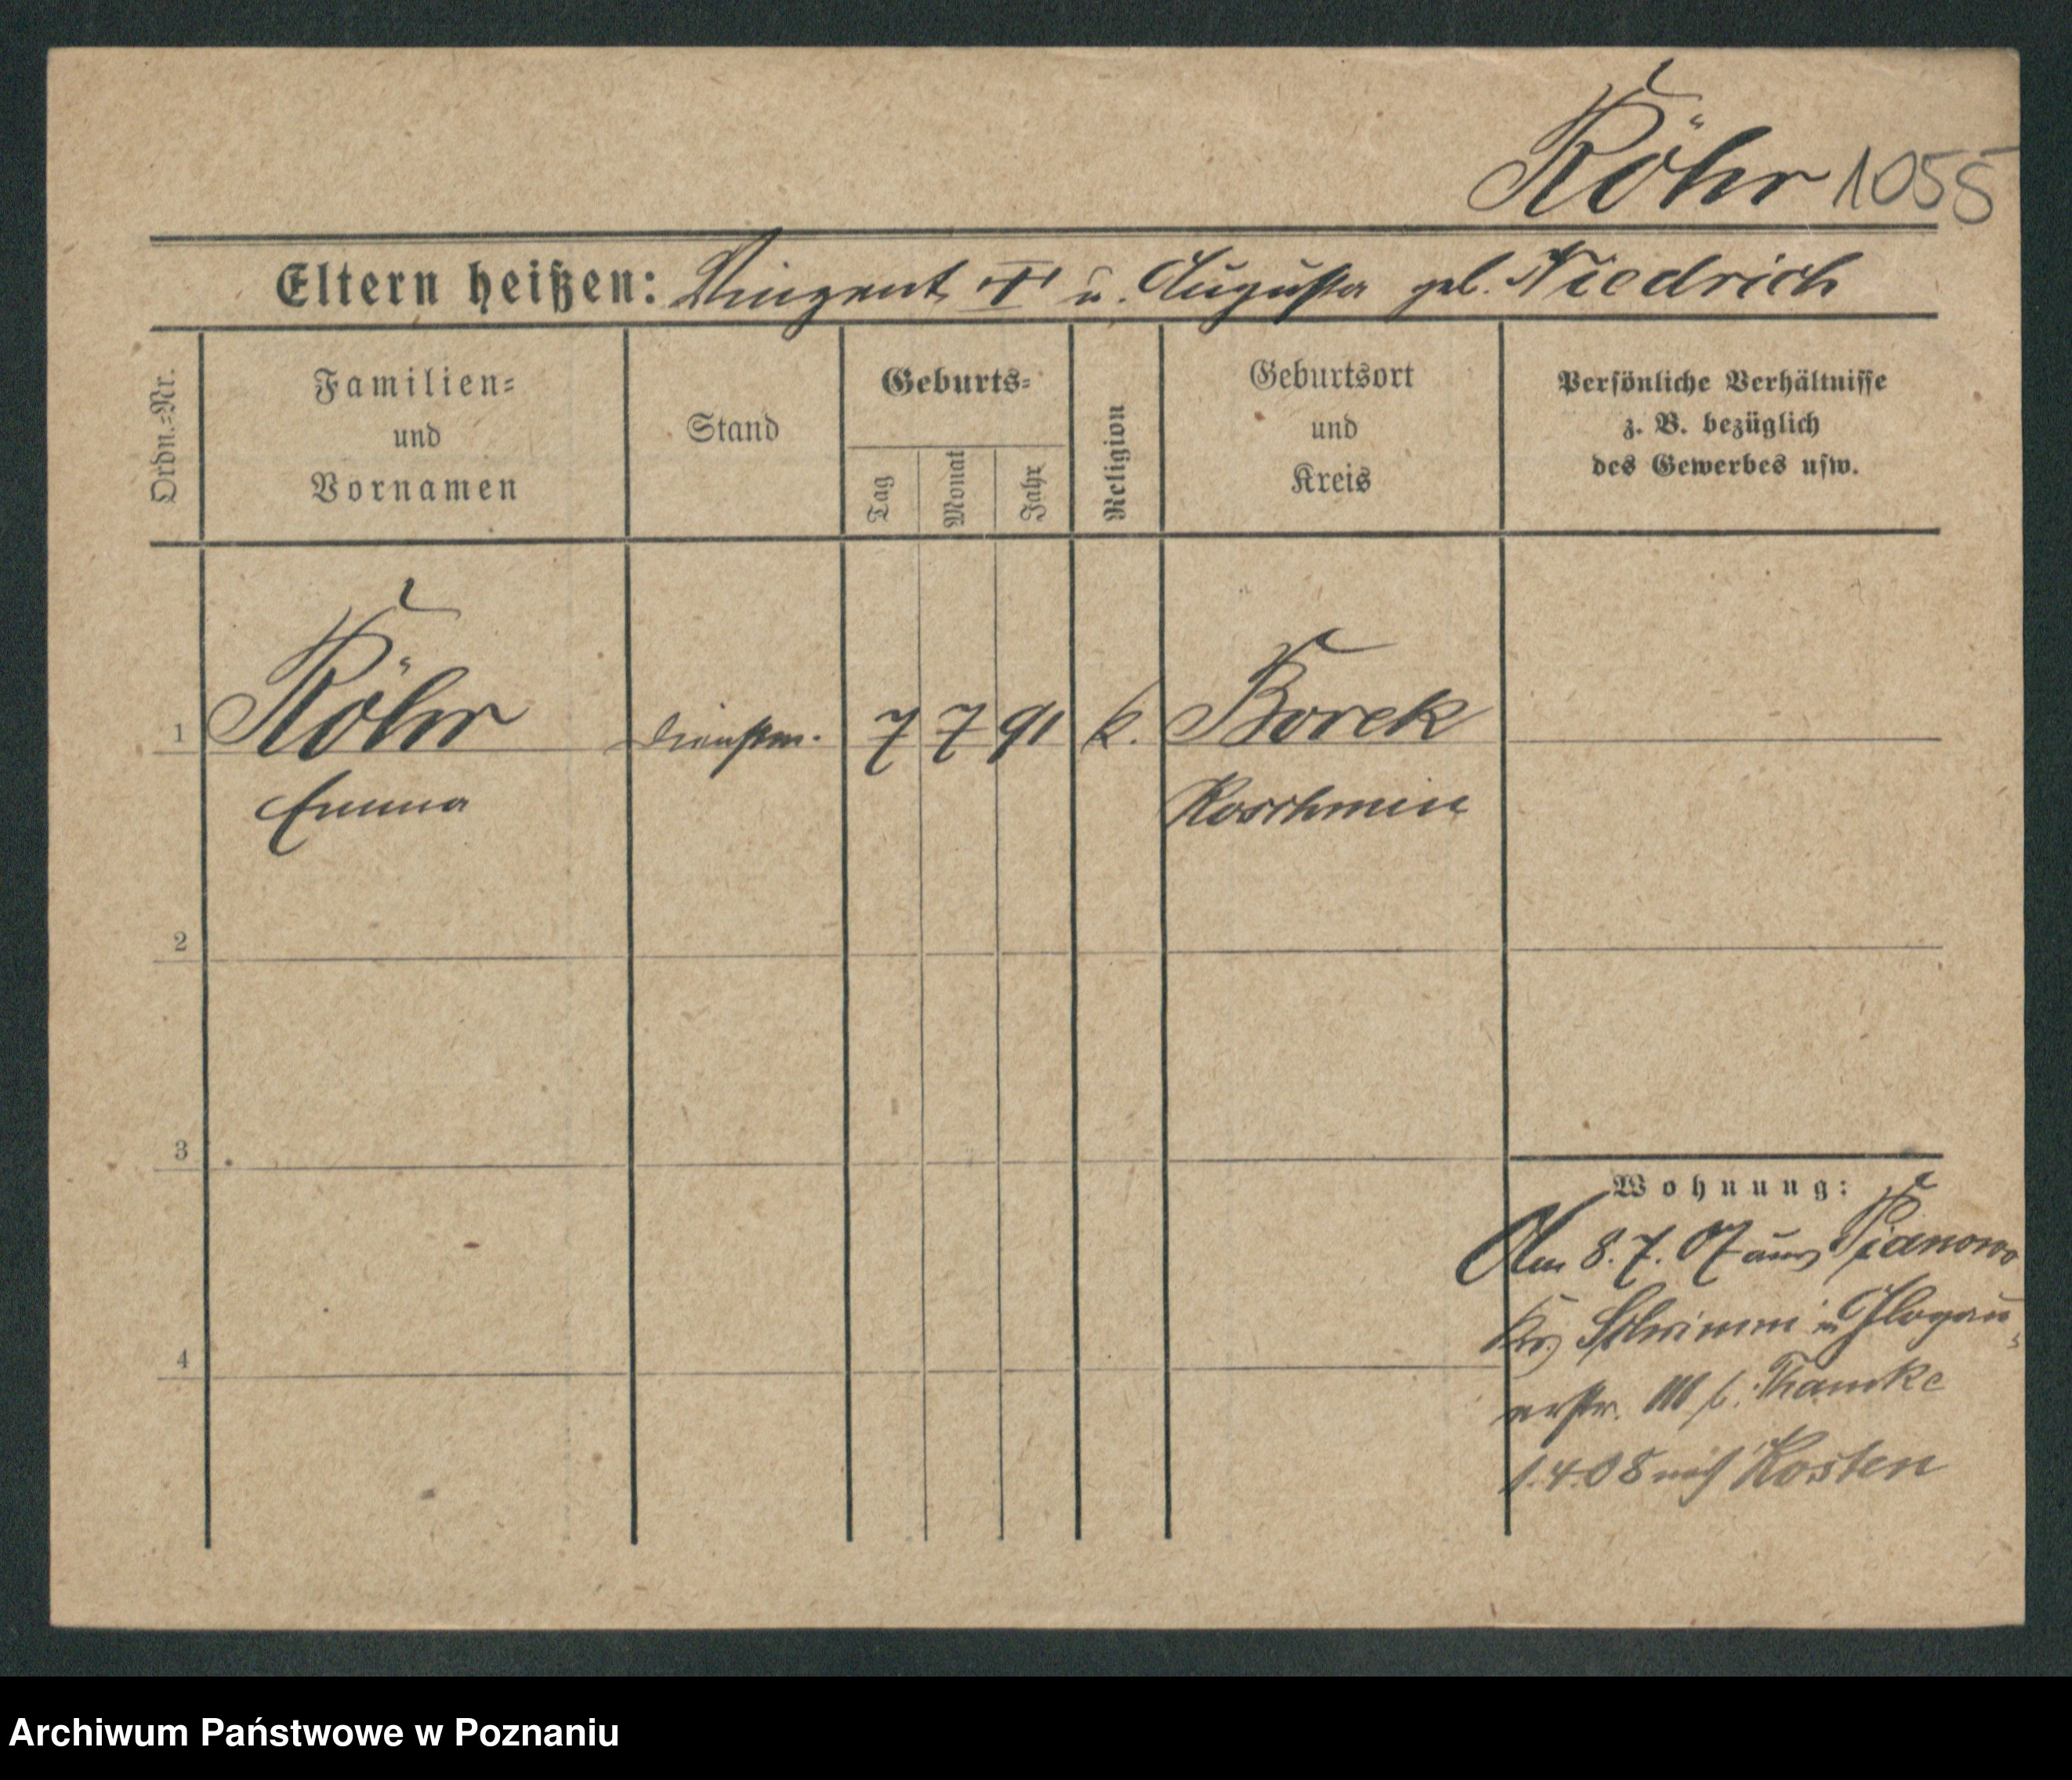 Röhr 1055
Eltern heißen: Vinzent, † u. Augusta geb. Niedrich
Ordn.=Nr.
Familien=
und
Vornamen
Stand
Geburts=
Tag
Monat
Jahr
Religion
Geburtsort
und
Kreis
Persönliche Verhältnisse
z. B. bezüglich
des Gewerbes usw.
1 Röhr Dienstm. 7 7 91 k. Borek
Emma Koschmin
2
3
4
Wohnung:
Am 8.7.07 aus Pianowo
Krs. Schrimm in Glogau-
erstr. 111 b. Thamke
1.4.08 nach Kosten
Archiwum Państwowe w Poznaniu